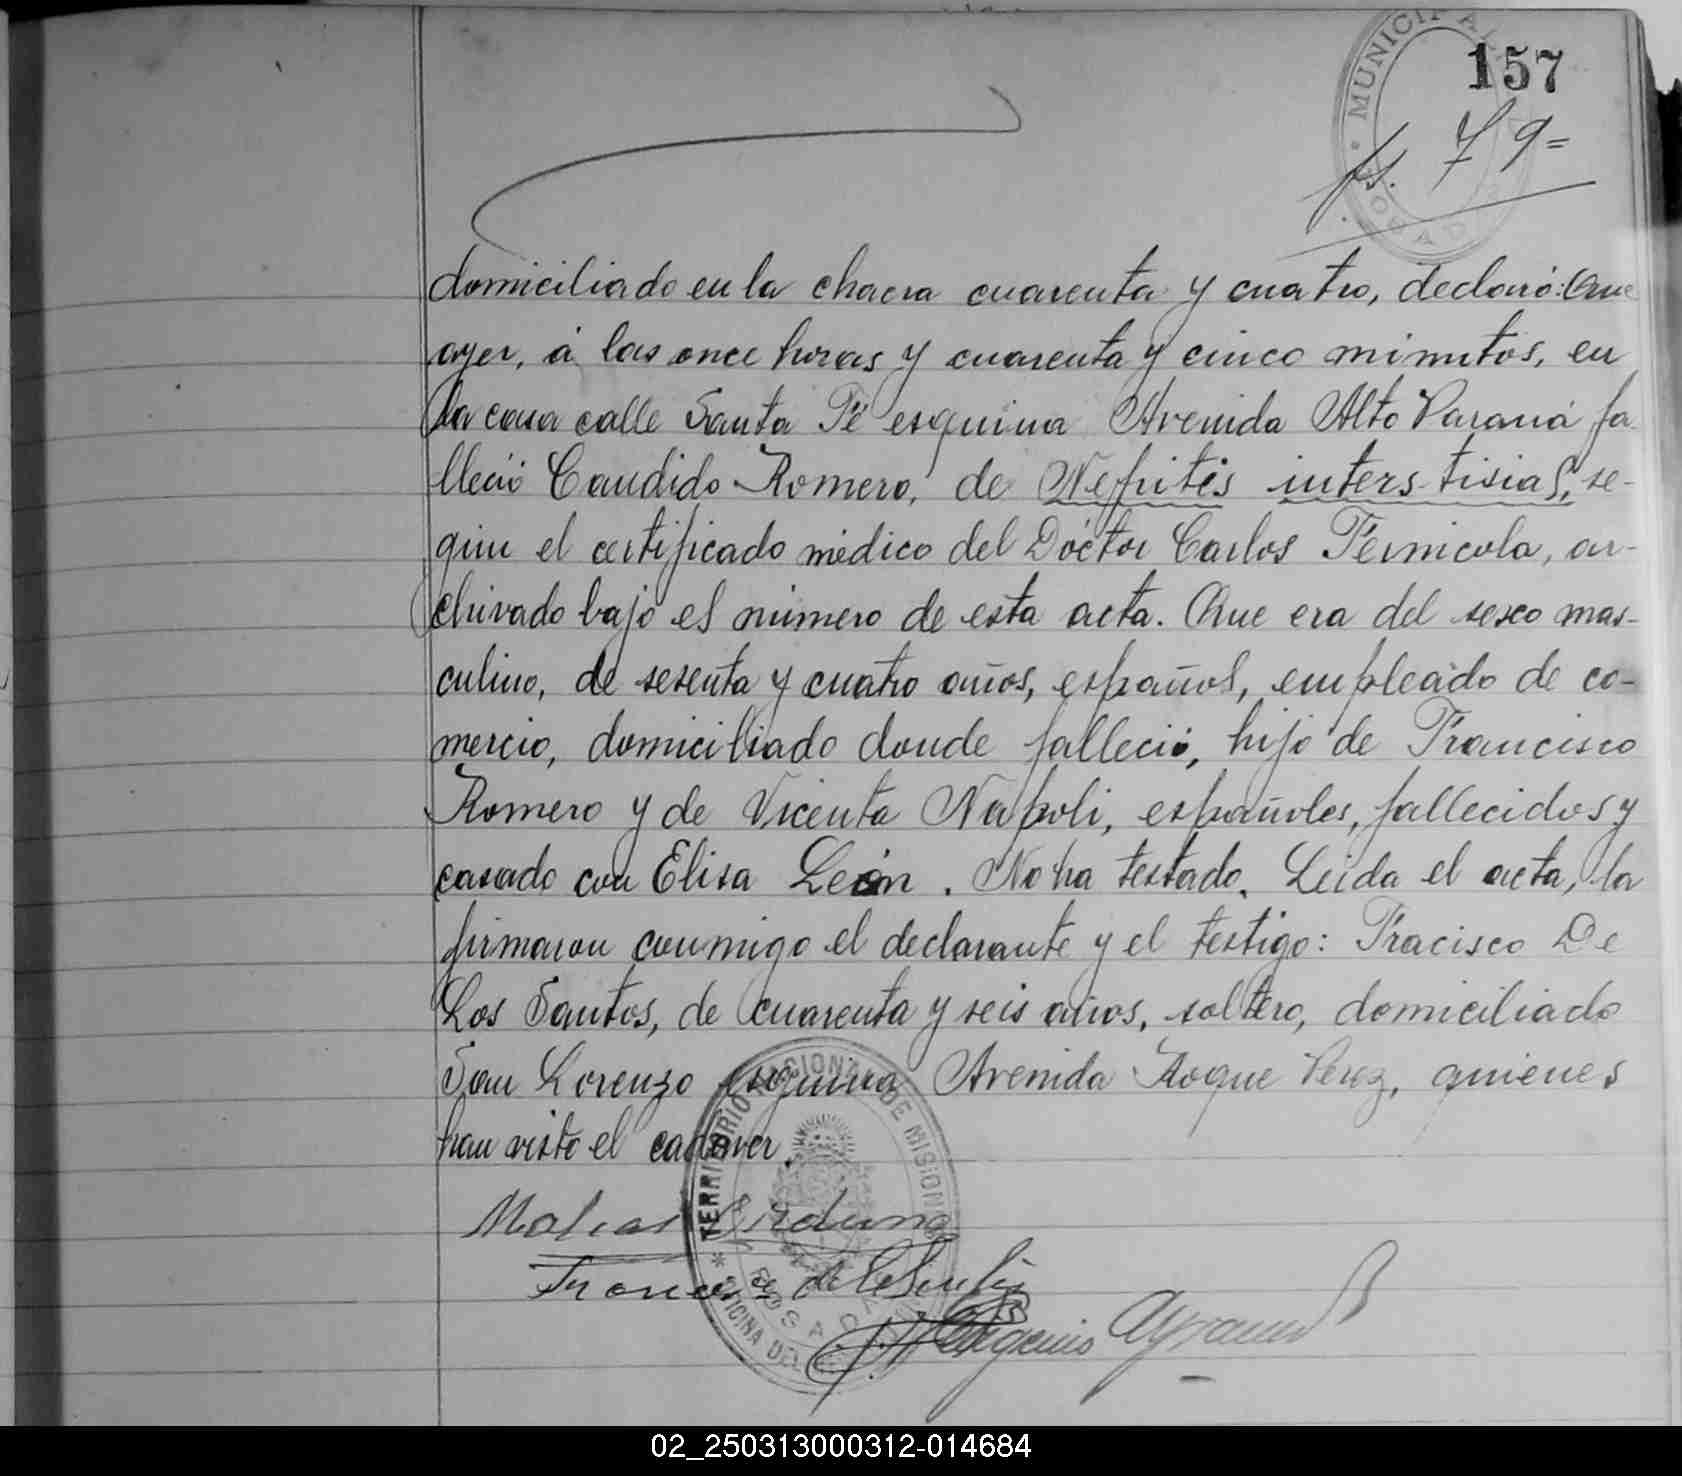 MUNICIPAL
157
fs. 79=
domiciliado en la chacra cuarenta y cuatro, declaró: Que
ayer, á las once horas y cuarenta y cinco minutos, en
la casa calle Santa Fé esquina Avenida Alto Paraná fa-
lleció Candido Romero, de Nefritis inters-tisial, se-
gun el certificado médico del Doctor Carlos Fernicola, ar-
chivado bajo el número de esta acta. Que era del sexo mas-
culino, de sesenta y cuatro años, español, empleado de co-
mercio, domiciliado donde falleció, hijo de Francisco
Romero y de Vicenta Napoli, españoles, fallecidos y
casado con Elisa León. No ha testado. Leida el acta, la
firmaron conmigo el declarante y el testigo: Fracisco De
Los Santos, de cuarenta y seis años, soltero, domiciliado
San Lorenzo esquina Avenida Roque Perez, quienes
han visto el cadaver.
TERRITORIO NACIONAL DE MISIONES
OFICINA DEL
POSADAS
Eugenio
02_250313000312-014684